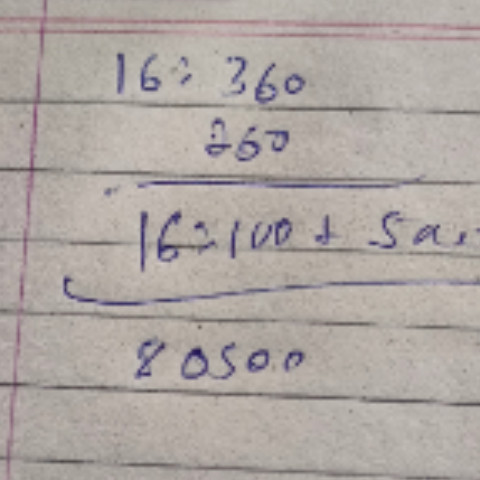 16: 360
260
16:100 + 5a.
80500